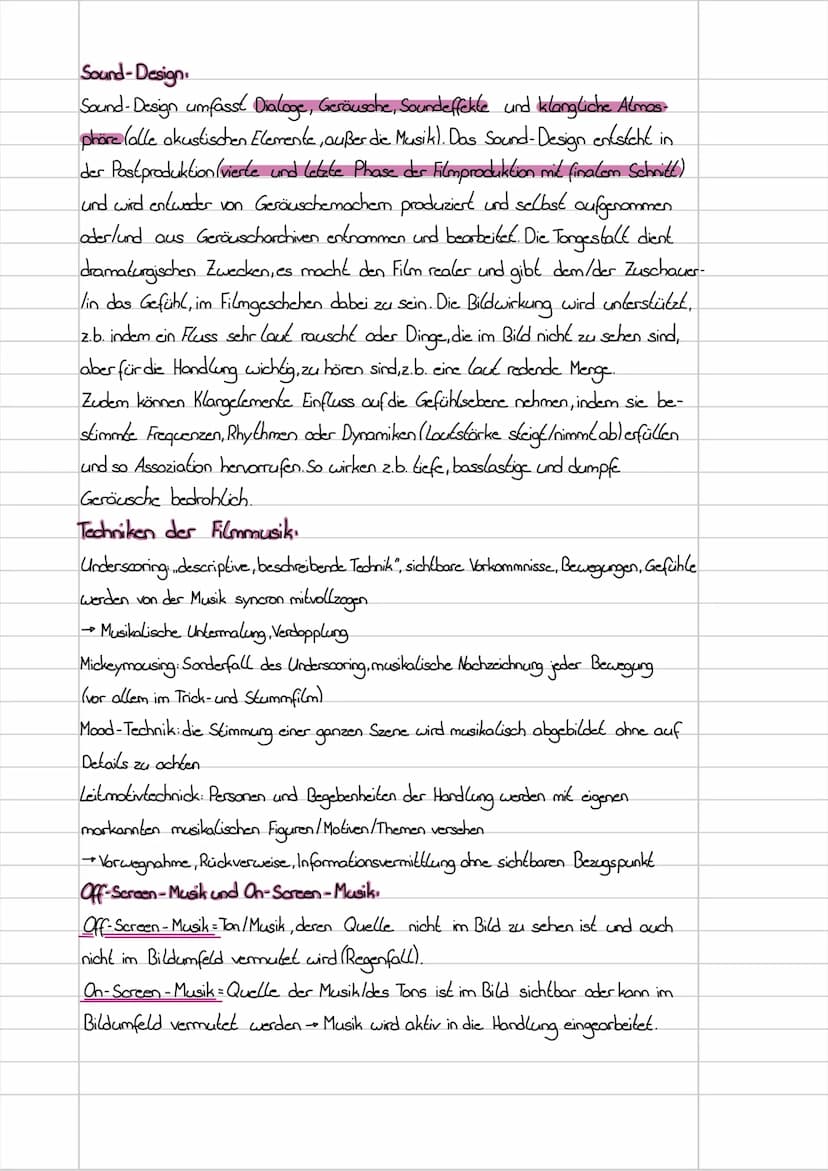 Sound-Design:
Sound-Design umfasst Dialoge, Geräusche, Soundeffekte und klangliche Atmos-
phäre (alle akustischen Elemente, außer die Musik). Das Sound-Design entsteht in
der Postproduktion (vierte und letzte Phase der Filmproduktion mit finalem Schnitt)
und wird entweder von Geräuschemachern produziert und selbst aufgenommen
oder/und aus Geräuscharchiven entnommen und bearbeitet. Die Tongestalt dient
dramaturgischen Zwecken, es macht den Film realer und gibt dem/der Zuschauer-
/in das Gefühl, im Filmgeschehen dabei zu sein. Die Bildwirkung wird unterstützt,
z.b. indem ein Fluss sehr laut rauscht oder Dinge, die im Bild nicht zu sehen sind,
aber für die Handlung wichtig, zu hören sind, z.b. eine laut redende Menge.
Zudem können Klangelemente Einfluss auf die Gefühlsebene nehmen, indem sie be-
stimmte Frequenzen, Rhythmen oder Dynamiken (Lautstärke steigt/nimmt ab) erfüllen
und so Assoziation hervorrufen. So wirken z.b. tiefe, basslastige und dumpfe
Geräusche bedrohlich.
Techniken der Filmmusik:
Underscoring: „descriptive, beschreibende Technik", sichtbare Vorkommnisse, Bewegungen, Gefühle
werden von der Musik syncron mitvollzogen
→ Musikalische Untermalung, Verdopplung
Mickeymousing: Sonderfall des Underscoring, musikalische Nachzeichnung jeder Bewegung
(vor allem im Trick- und Stummfilm)
Mood-Technik: die Stimmung einer ganzen Szene wird musikalisch abgebildet ohne auf
Details zu achten
Leitmotivtechnick: Personen und Begebenheiten der Handlung werden mit eigenen
markannten musikalischen Figuren/Motiven/Themen versehen
→ Vorwegnahme, Rückverweise, Informationsvermittlung ohne sichtbaren Bezugspunkt
Off-Screen-Musik und On-Screen-Musik:
Off-Screen-Musik = Ton/Musik, deren Quelle nicht im Bild zu sehen ist und auch
nicht im Bildumfeld vermutet wird (Regenfall).
On-Screen-Musik = Quelle der Musik/des Tons ist im Bild sichtbar oder kann im
Bildumfeld vermutet werden → Musik wird aktiv in die Handlung eingearbeitet.